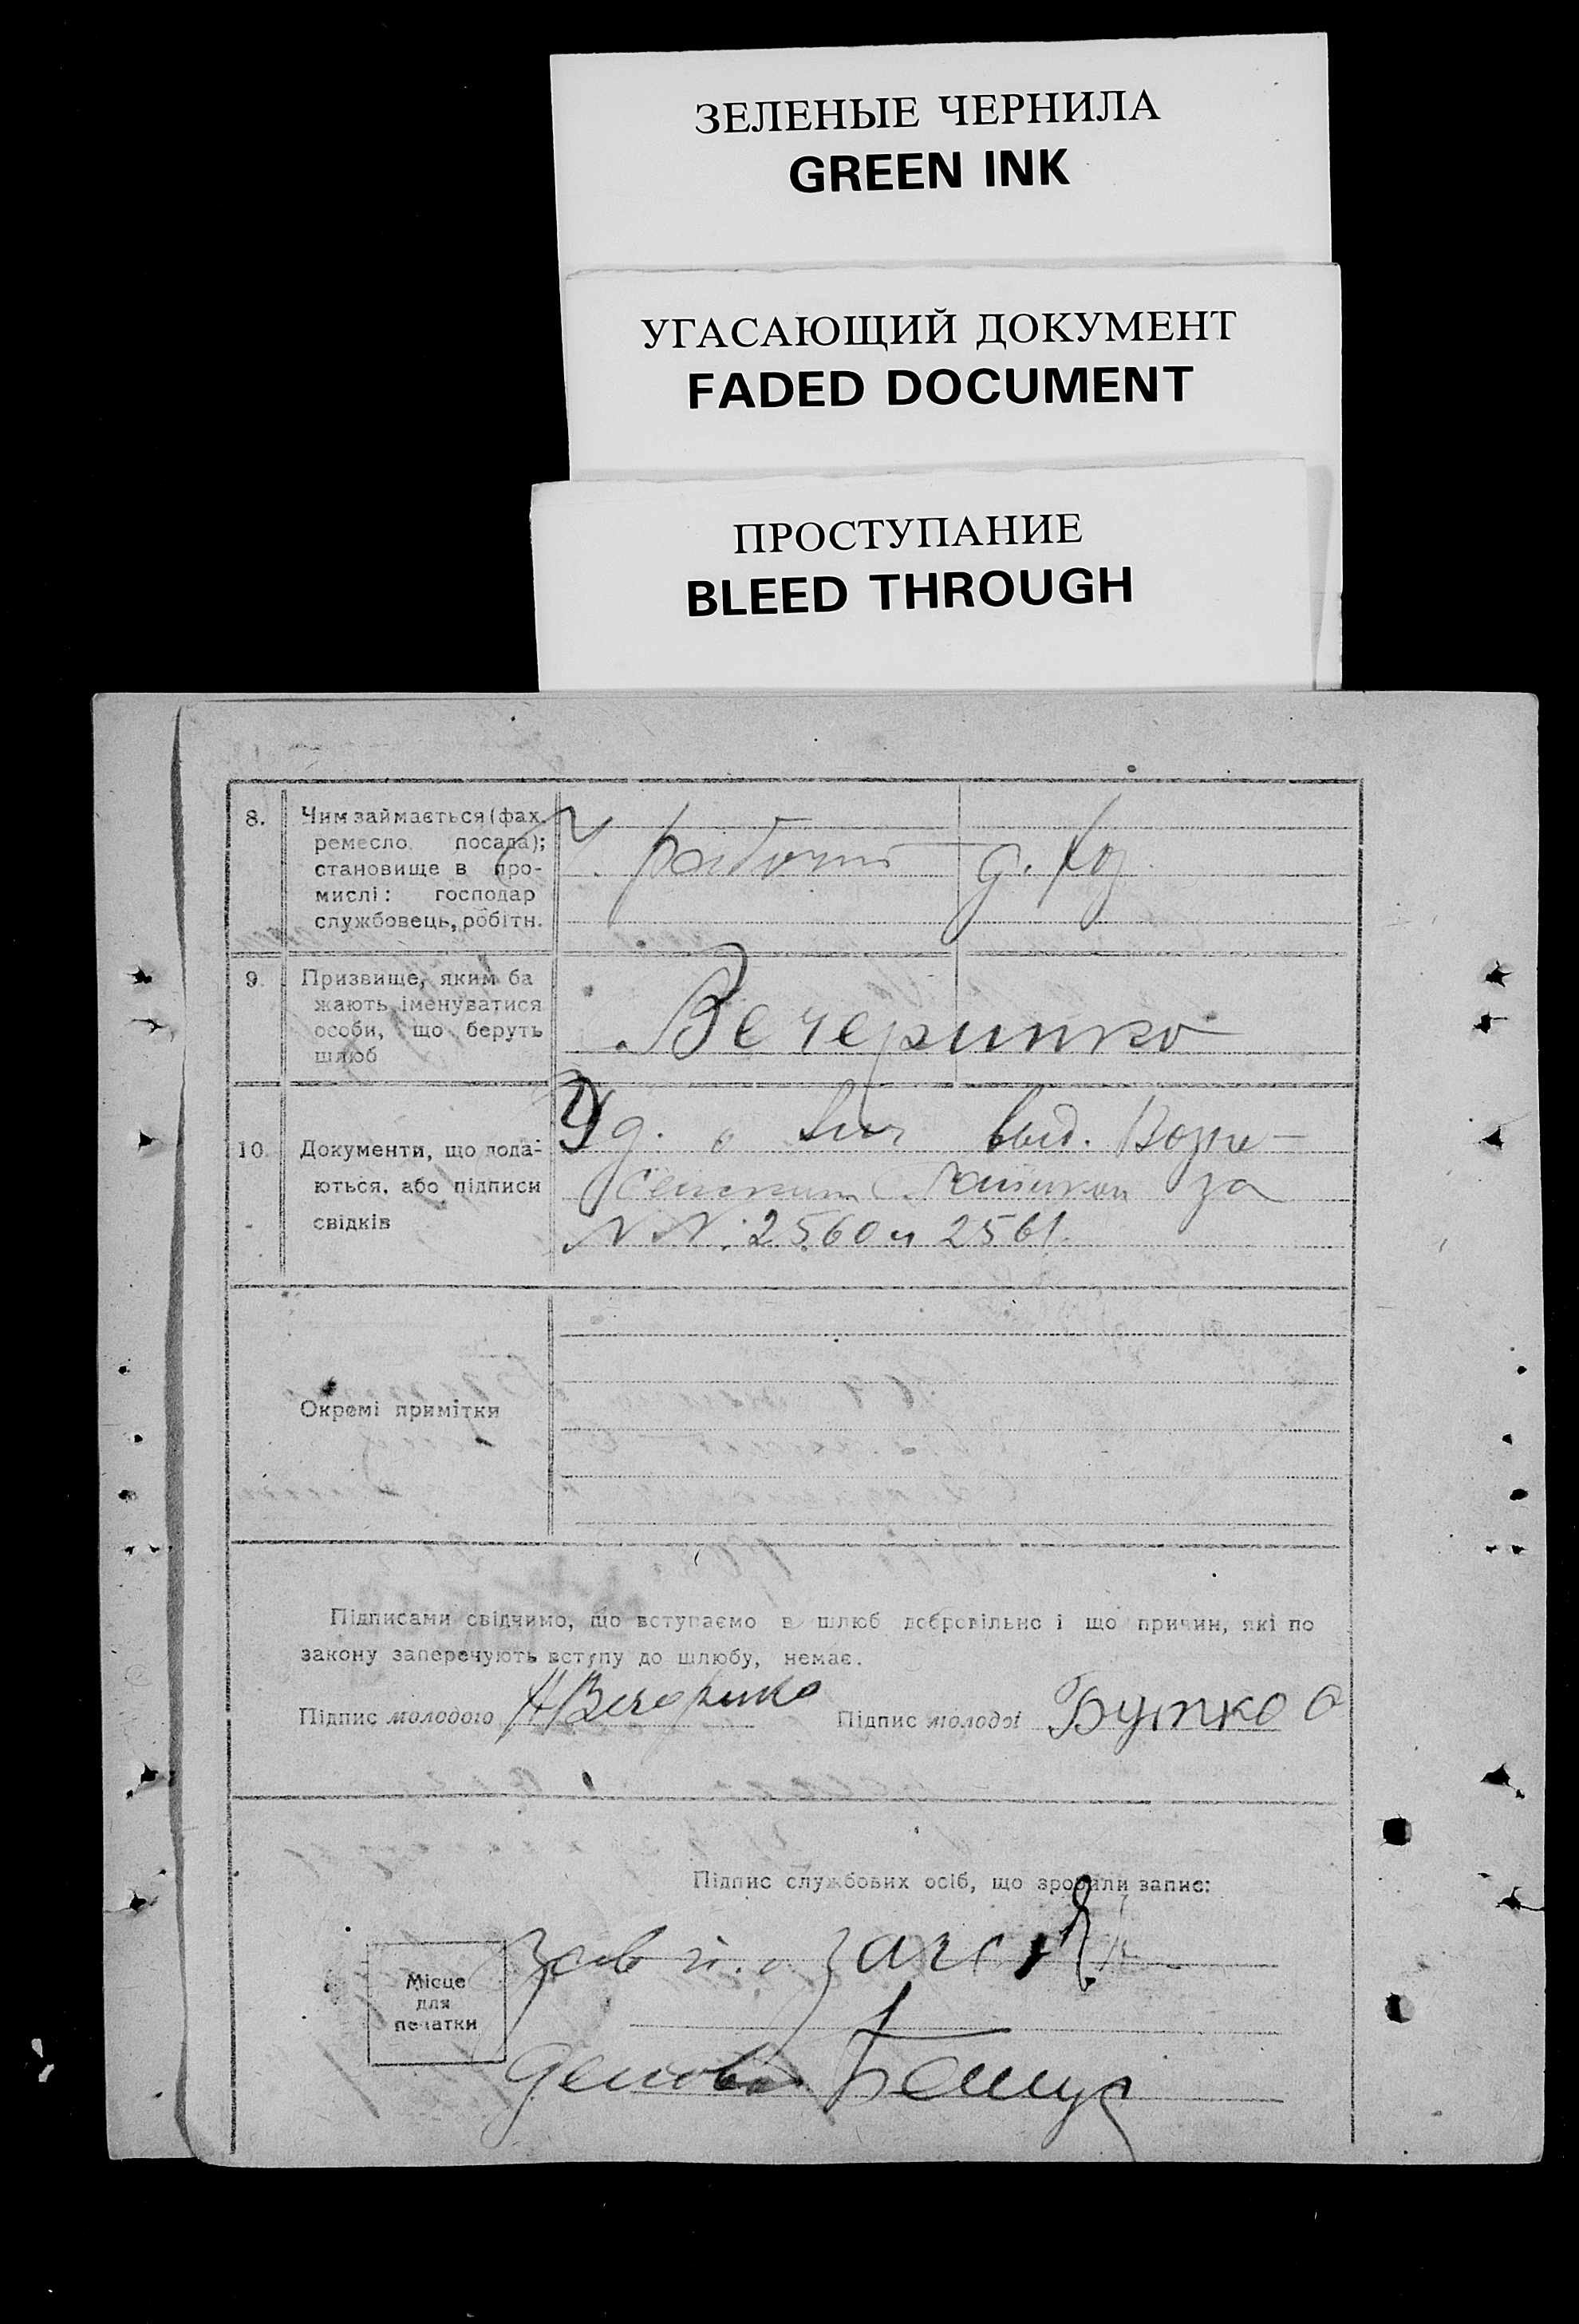 ЗЕЛЕНЫЕ ЧЕРНИЛА
GREEN INK
УГАСАЮЩИЙ ДОКУМЕНТ
FADED DOCUMENT
ПРОСТУПАНИЕ
BLEED THROUGH
8.
Чим займається (фах,
ремесло посада);
становище в про-
мислі: господар
службовець, робітн.
д. хоз
9.
Призвище, яким ба
жають іменуватися
особи, що беруть
шлюб
Вечеринко
10.
Документи, що пода-
ються, або підписи
свідків
выд. Возне-
сенским за
NN: 2560 и 2561.
Окремі примітки
Підписами свідчимо, що вступаємо в шлюб добровільно і що причин, які по
закону заперечують вступу до шлюбу, немає.
Підпис молодого
Підпис молодої Бутко О
Підпис службових осіб, що зробили запис:
Зав загс
Місце
для
печатки